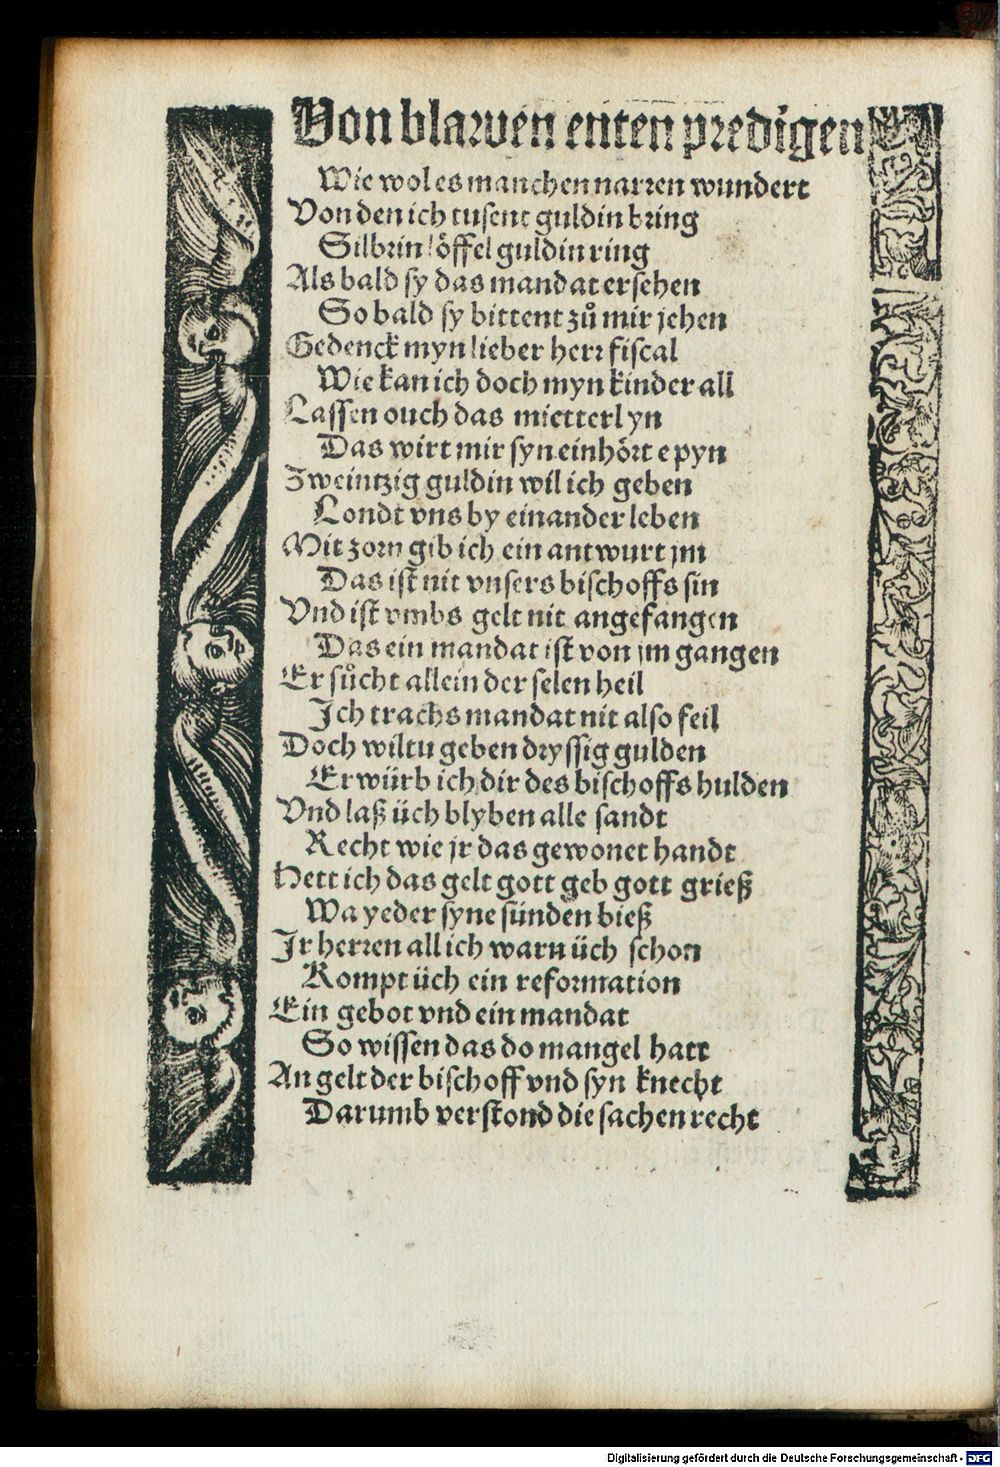 Von blawen enten predigen
Wie wol es manchen narren wundert
Von den ich tusent guldin bring
Silbrin löffel guldin ring
Als bald sy das mandat ersehen
So bald sy bittent zů mir jehen
Gedenck myn lieber herr fiscal
Wie kan ich doch myn kinder all
Lassen ouch das mietterlyn
Das wirt mir syn ein hörte pyn
Zweintzig guldin wil ich geben
Londt vns by einander leben
Mit zorn gib ich ein antwurt jm
Das ist nit vnsers bischoffs sin
Vnd ist vmbs gelt nit angefangen
Das ein mandat ist von jm gangen
Er sůcht allein der selen heil
Ich trachs mandat nit also feil
Doch wiltu geben dryssig gulden
Erwürb ich dir des bischoffs hulden
Vnd laß üch blyben alle sandt
Recht wie jr das gewonet handt
Hett ich das gelt gott geb gott grieß
Wa yeder syne sünden bieß
Ir herren all ich warn üch schon
Kompt üch ein reformation
Ein gebot vnd ein mandat
So wissen das do mangel hatt
An gelt der bischoff vnd syn knecht
Darumb verstond die sachen recht
Digitalisierung gefördert durch die Deutsche Forschungsgemeinschaft - DFG